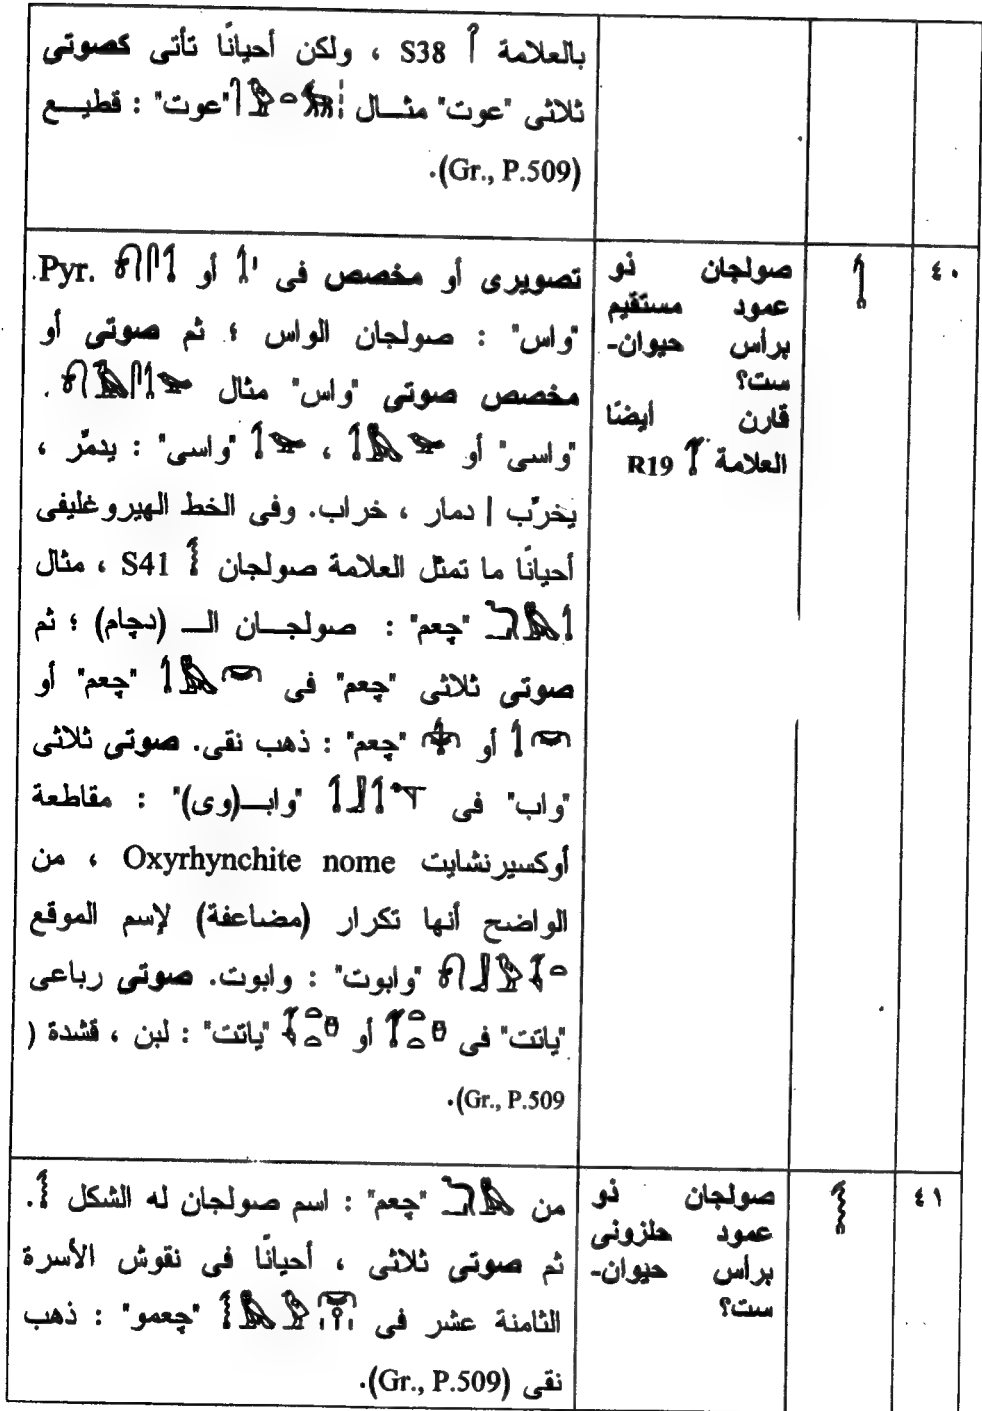 بالعلامة 𓋾 S38 ، ولكن أحيانًا تأتى كصوتى
ثلاثى "عوت" مثـــال "عوت" : قطيـــع
(Gr., P.509).
٤٠
𓌀
صولجان ذو
عمود مستقيم
برأس حيوان-
ست؟
قارن أيضًا
العلامة R19
تصويرى أو مخصص فى أو Pyr.
"واس" : صولجان الواس ؛ ثم صوتى أو
مخصص صوتى "واس" مثال
"واسى" أو ، "واسى" : يدمِّر ،
يخرِّب | دمار ، خراب. وفى الخط الهيروغليفى
أحيانًا ما تمثل العلامة صولجان 𓌁 S41 ، مثال
"چعم" : صولجـــان الـــ (دچام) ؛ ثم
صوتى ثلاثى "چعم" فى "چعم" أو
أو "چعم" : ذهب نقى. صوتى ثلاثى
"واب" فى "وابـــ(وى)" : مقاطعة
أوكسيرنشايت Oxyrhynchite nome ، من
الواضح أنها تكرار (مضاعفة) لإسم الموقع
"وابوت" : وابوت. صوتى رباعى
"ياتت" فى أو "ياتت" : لبن ، قشدة (
Gr., P.509).
٤١
𓌁
صولجان ذو
عمود حلزونى
برأس حيوان-
ست؟
من "چعم" : اسم صولجان له الشكل 𓌁.
ثم صوتى ثلاثى ، أحيانًا فى نقوش الأسرة
الثامنة عشر فى "چعمو" : ذهب
نقى (Gr., P.509).